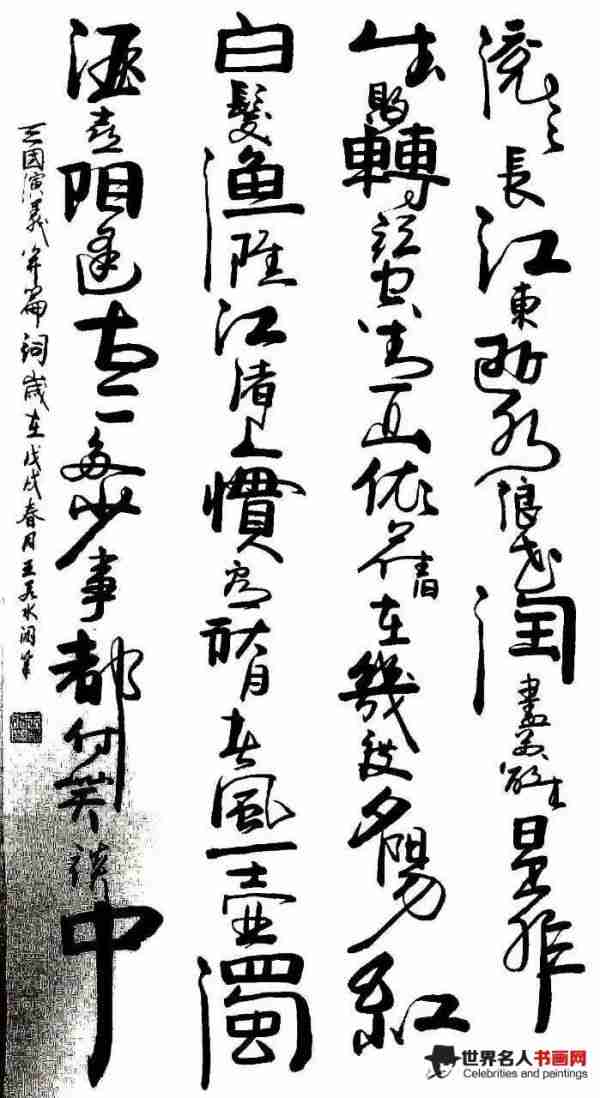 滚滚長江東逝水浪花淘盡英雄是非
成敗轉頭空青山依舊在幾度夕陽紅
白髮漁樵江渚上慣看秋月春風一壺濁
酒喜相逢古今多少事都付笑談中
三國演義開篇詞歲在戊戌春月王
世界名人书画网
Celebrities and paintings